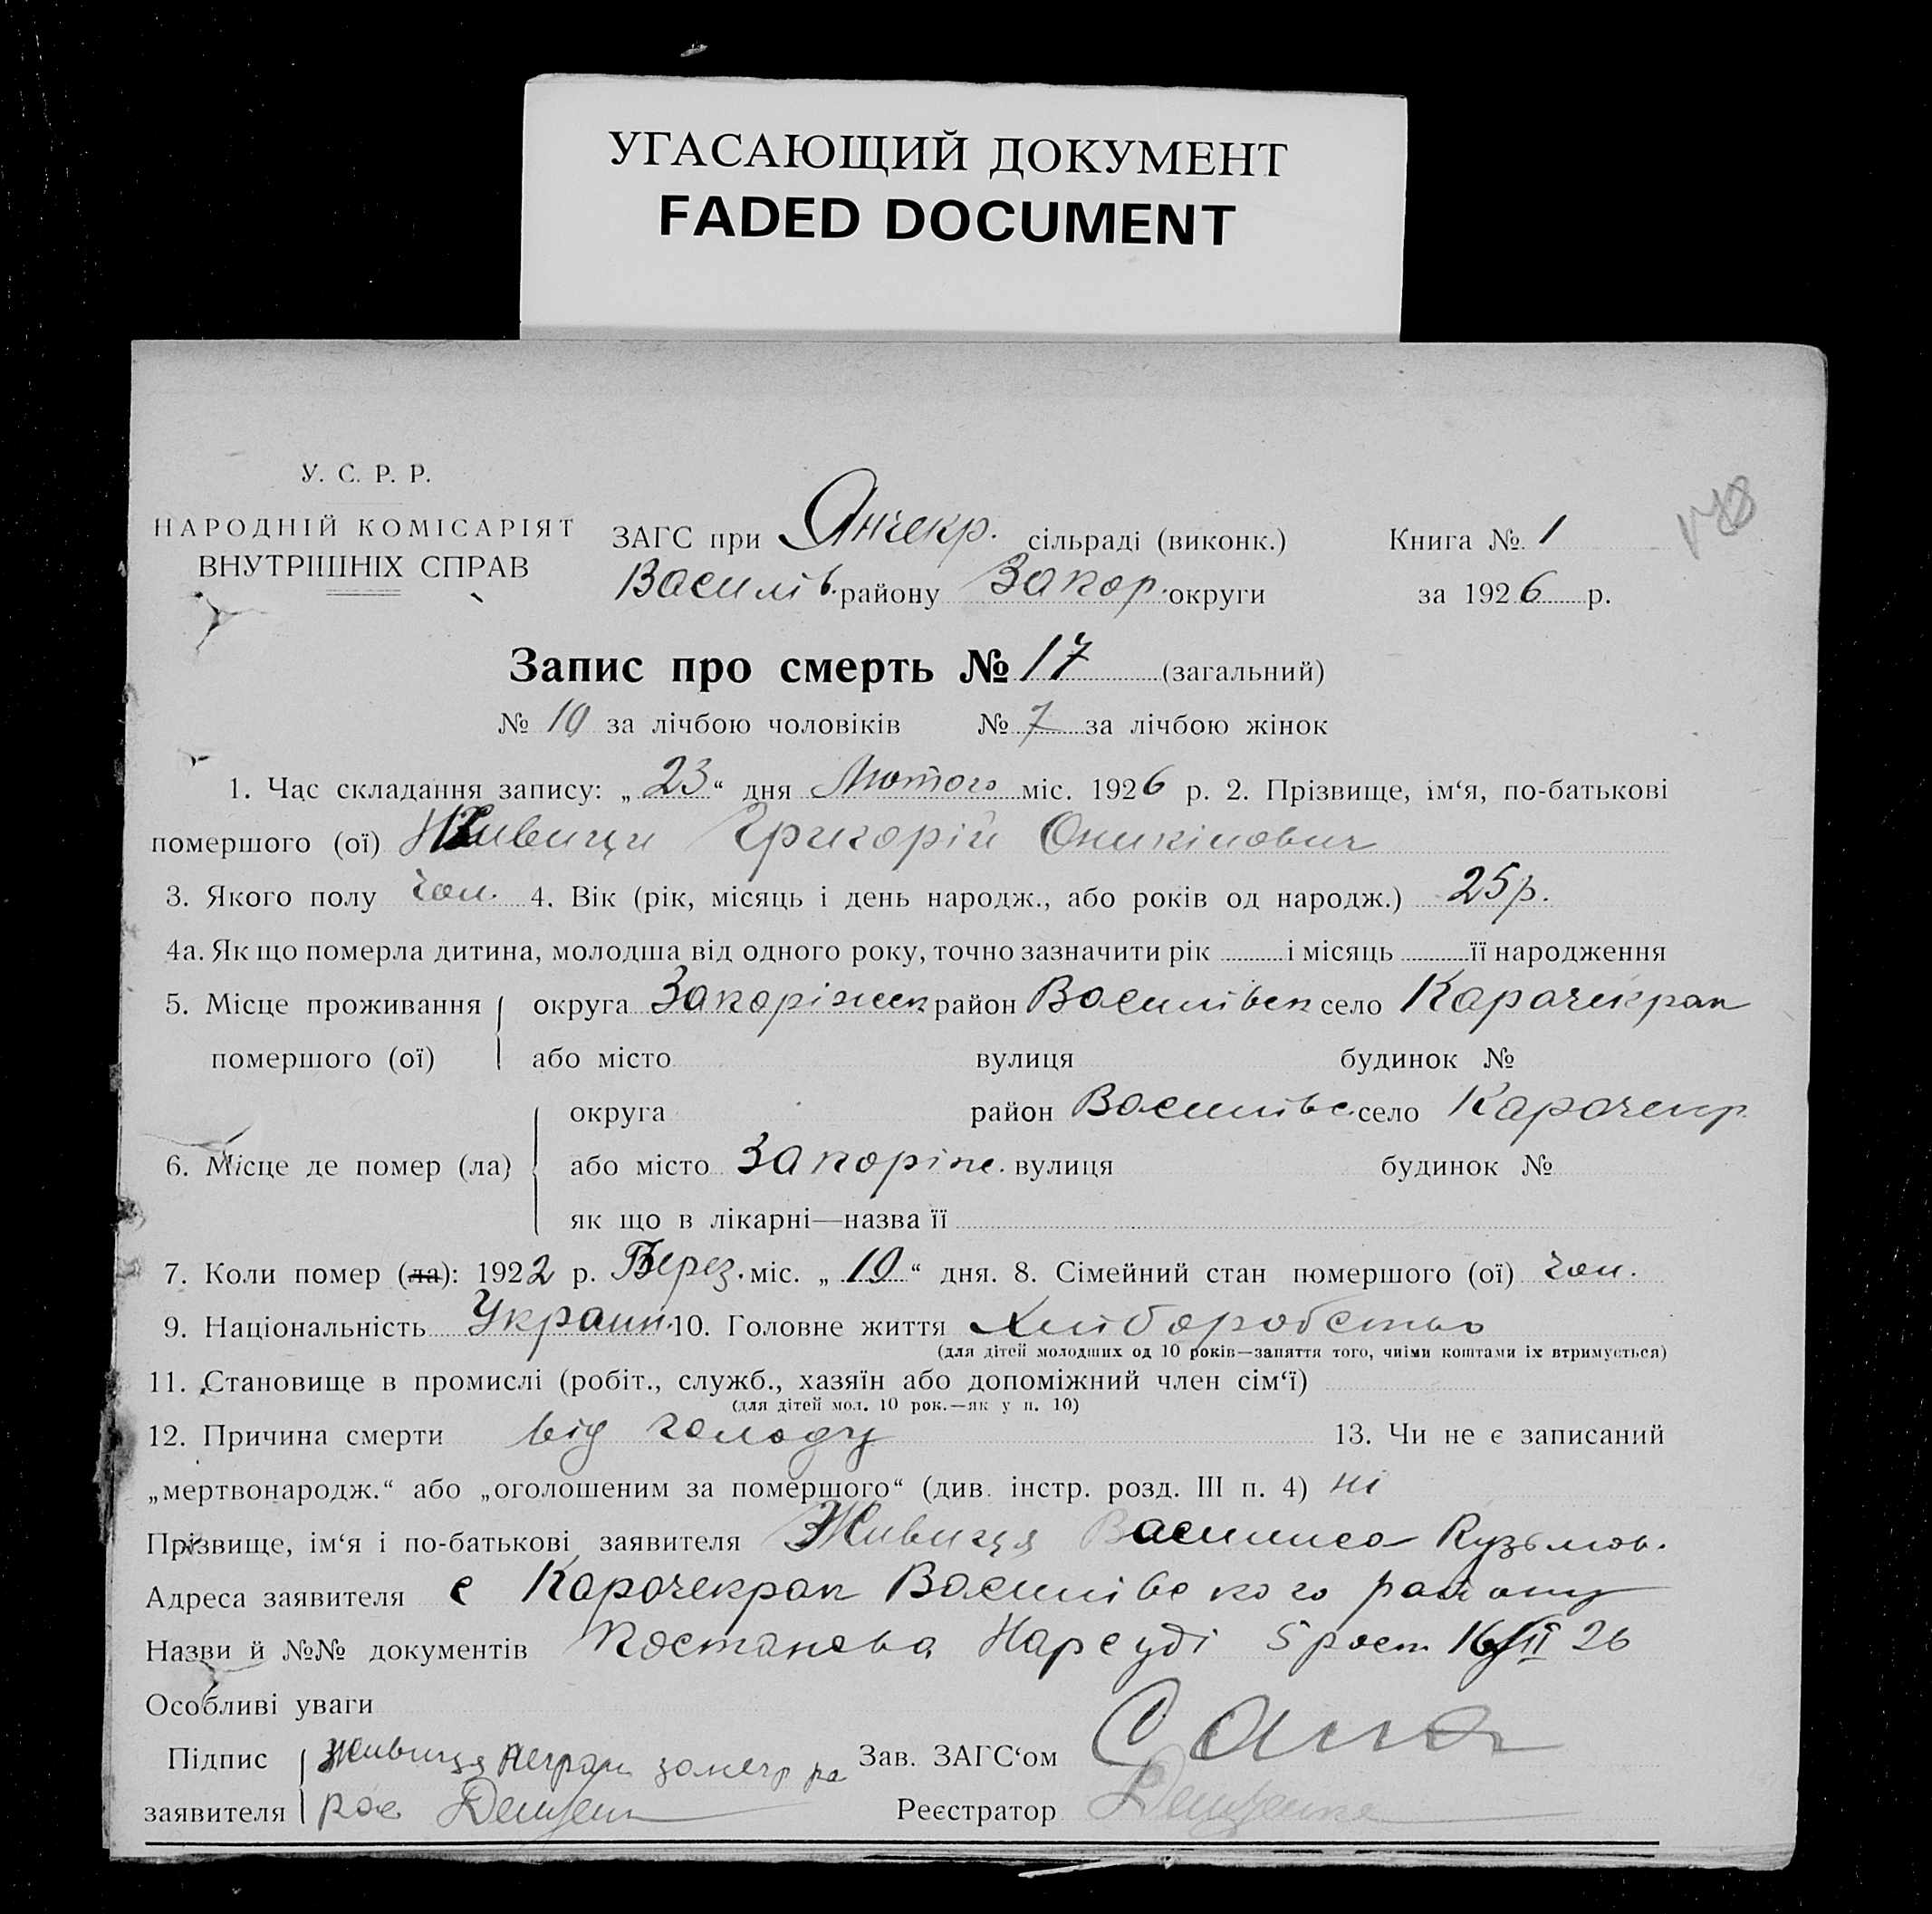 УГАСАЮЩИЙ ДОКУМЕНТ
FADED DOCUMENT
У. С. Р. Р.
НАРОДНІЙ КОМІСАРІЯТ
ВНУТРІШНІХ СПРАВ
ЗАГС при Янчекр. сільраді (виконк.) Книга № 1
Василів. району Запор. округи за 1926 р.
Запис про смерть № 17 (загальний)
№ 10 за лічбою чоловіків № 7 за лічбою жінок
1. Час складання запису: „23“ дня Лютого міс. 1926 р. 2. Прізвище, ім‘я, по-батькові
помершого (ої) Живици Григорій Оникіпович
3. Якого полу чол. 4. Вік (рік, місяць і день народж., або років од народж.) 25 р.
4а. Як що померла дитина, молодша від одного року, точно зазначити рік і місяць її народження
5. Місце проживання округа Запоріжск район Василівск село Карачекрак
помершого (ої) або місто вулиця будинок №
округа район Василівс. село Карочекр
6. Місце де помер (ла) або місто Запоріж. вулиця будинок №
як що в лікарні—назва її
7. Коли помер (ла): 1922 р. Берез. міс. „10“ дня. 8. Сімейний стан помершого (ої) чол.
9. Національність Україн. 10. Головне життя Хлиборобство
(для дітей молодших од 10 років—заняття того, чиїми коштами їх втримується)
11. Становище в промислі (робіт., служб., хазяїн або допоміжний член сім‘ї)
(для дітей мол. 10 рок.—як у п. 10)
12. Причина смерти від голоду 13. Чи не є записаний
„мертвонародж.“ або „оголошеним за помершого“ (див. інстр. розд. III п. 4) ні
Прізвище, ім‘я і по-батькові заявителя Живиця Василиса Кузьмов.
Адреса заявителя с Карочекрак Василівского району
Назви й №№ документів Постанова Нарсуді 5 16/II 26
Особливі уваги
Підпис Живиця Зав. ЗАГС‘ом
заявителя Реєстратор